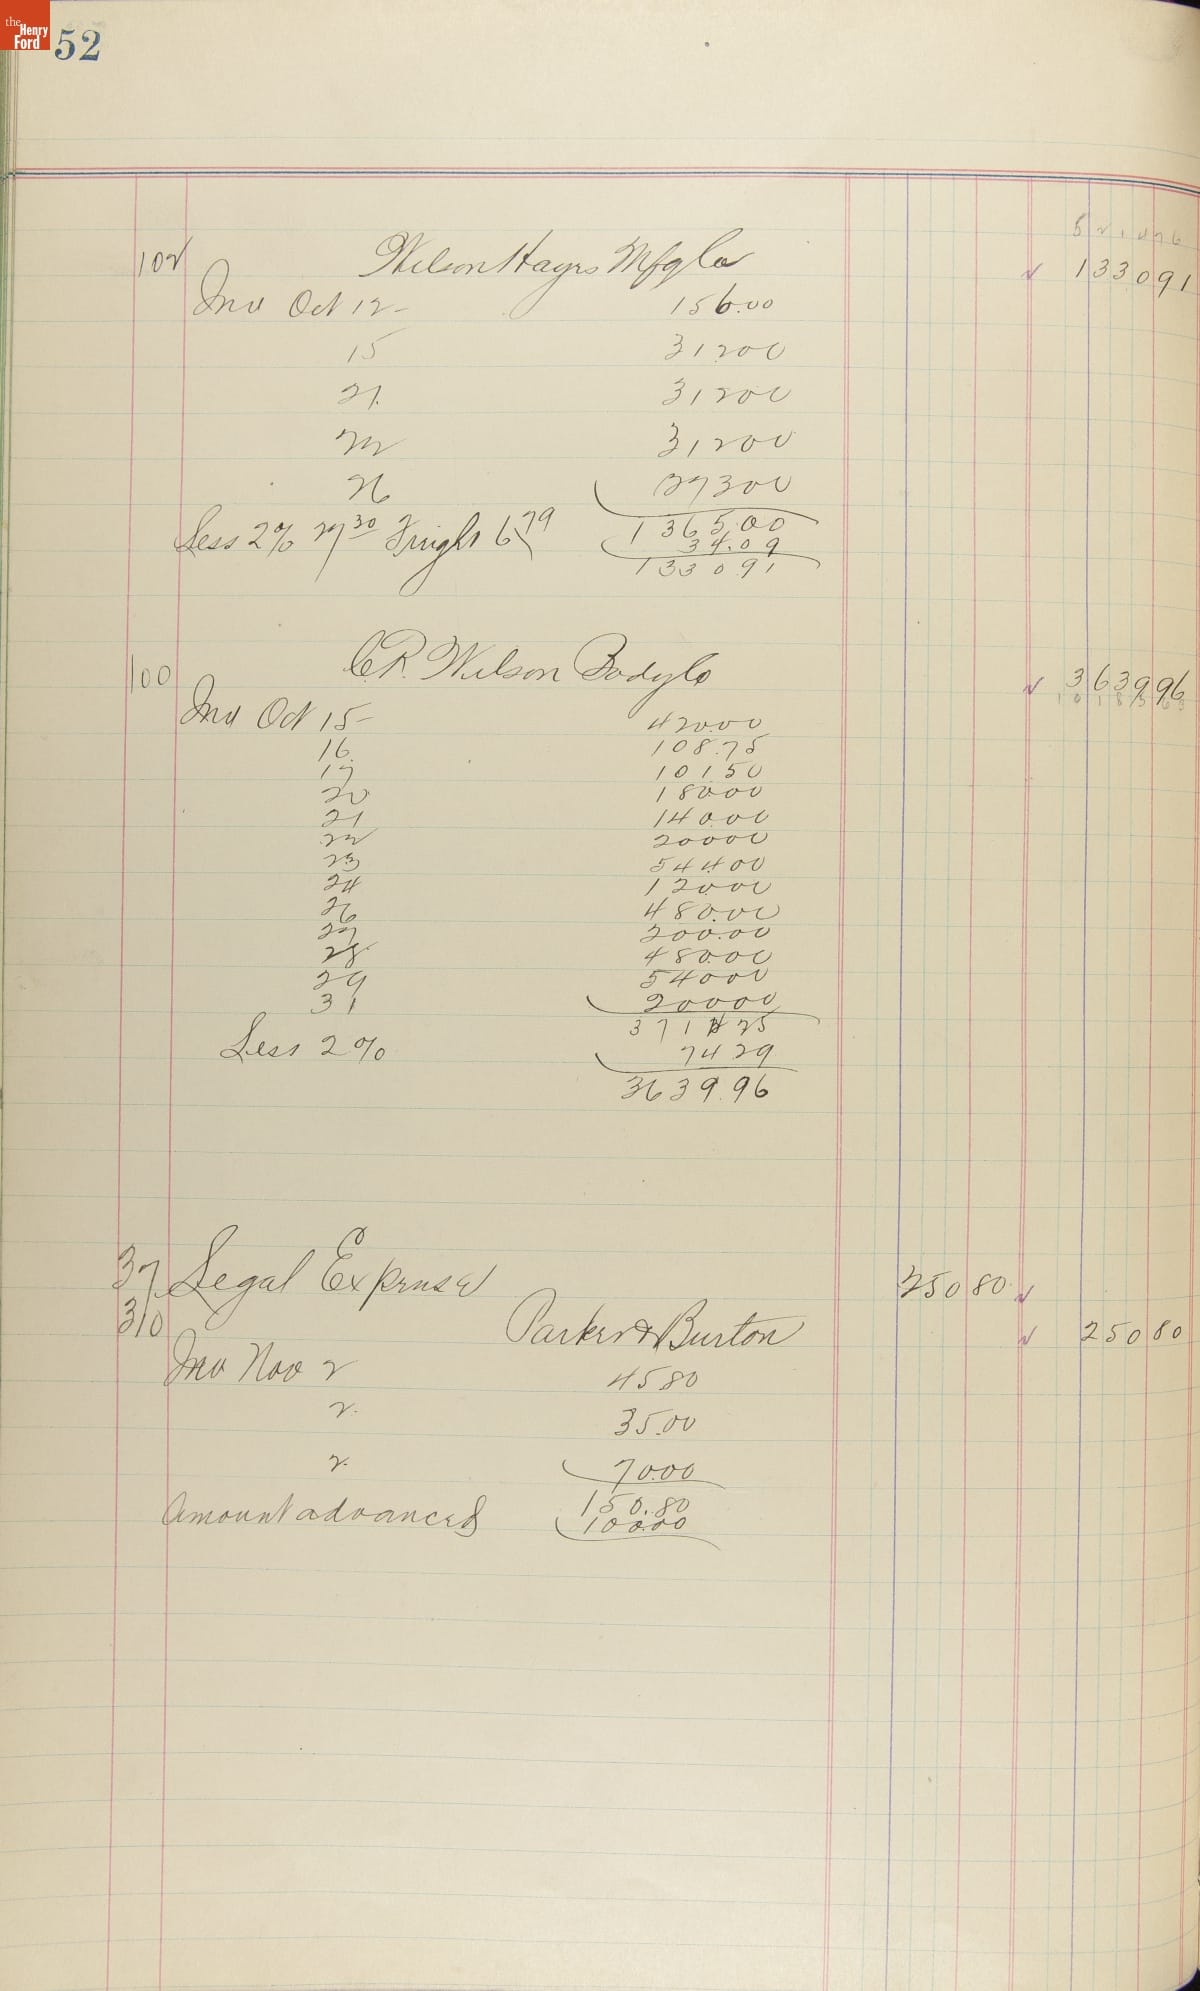 the Henry Ford
52
5210 76
102 Wilson Hayes Mfg Co ✓ 1330 91
Inv Oct 12 156.00
15 312 00
21. 312 00
22 312 00
26 273 00
Less 2% 27 30 Freight 6 79 1365.00
34.09
1330 91
100 C.R. Wilson Body Co ✓ 3639 96
Inv Oct 15 420.00
16. 108.75
17 101 50
20 180 00
21 140 00
22 200 00
23 544 00
24 120 00
26 480.00
27 200.00
28 480 00
29 540 00
31 200 00
3714 25
Less 2% 74 29
3639.96
37 Legal Expense 250 80 ✓
310 Parker & Burton ✓ 250 80
Inv Nov 2 45 80
2. 35.00
2. 70.00
150.80
Amount advanced 100.00